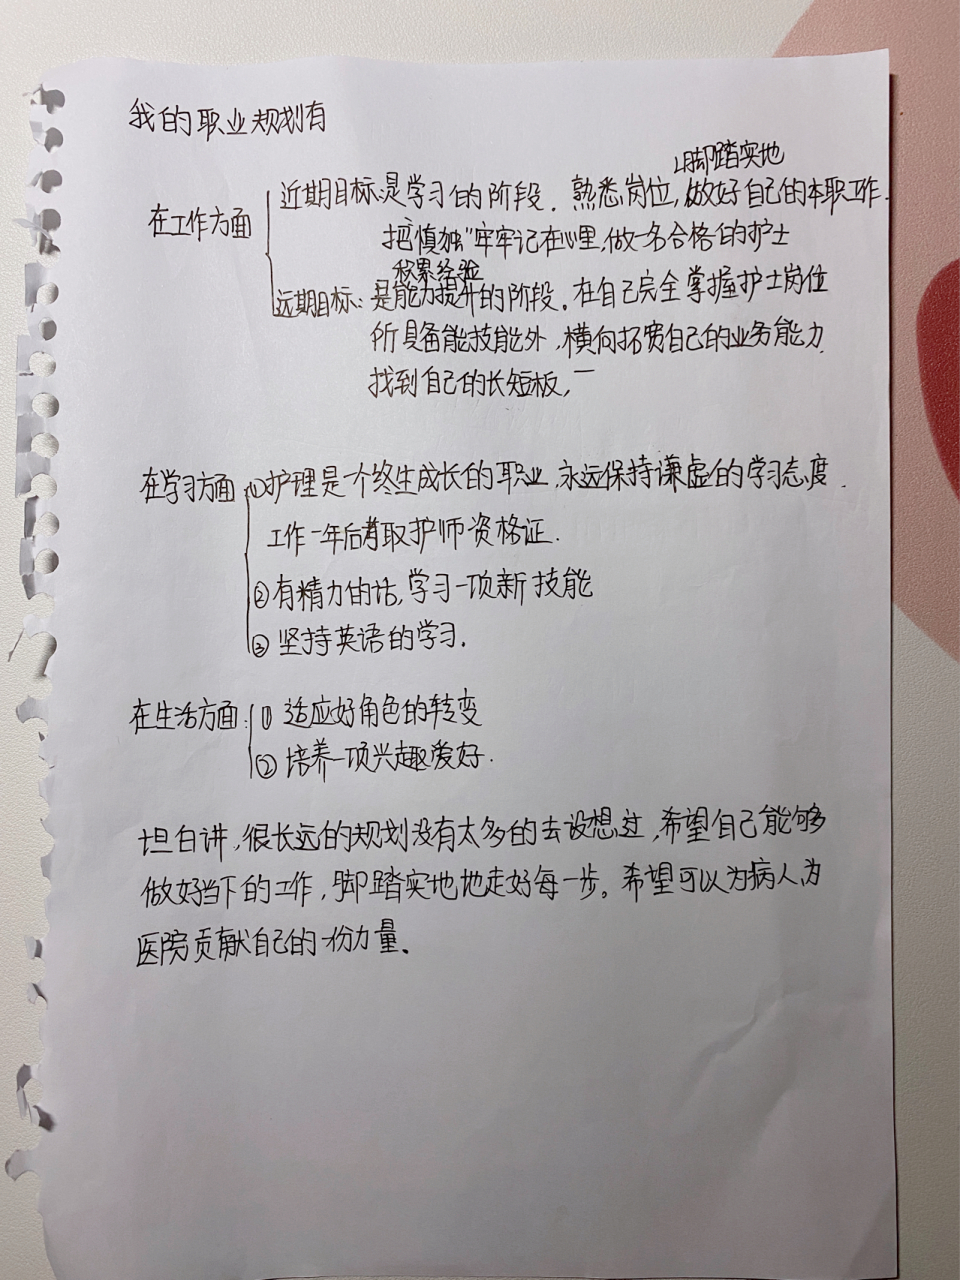 我的职业规划有
脚踏实地
在工作方面 近期目标:是学习的阶段. 熟悉岗位, 做好自己的本职工作.
把慎独"牢牢记在心里,做一名合格的护士
积累经验
远期目标: 是能力提升的阶段. 在自己完全掌握护士岗位
所具备能技能外,横向拓宽自己的业务能力.
找到自己的长短板,一
在学习方面 ①护理是一个终生成长的职业,永远保持谦虚的学习态度.
工作一年后考取护师资格证.
②有精力的话,学习一项新技能
③坚持英语的学习.
在生活方面: ① 适应好角色的转变
② 培养一项兴趣爱好.
坦白讲,很长远的规划没有太多的去设想过,希望自己能够
做好当下的工作,脚踏实地地走好每一步。希望可以为病人,为
医院贡献自己的一份力量.